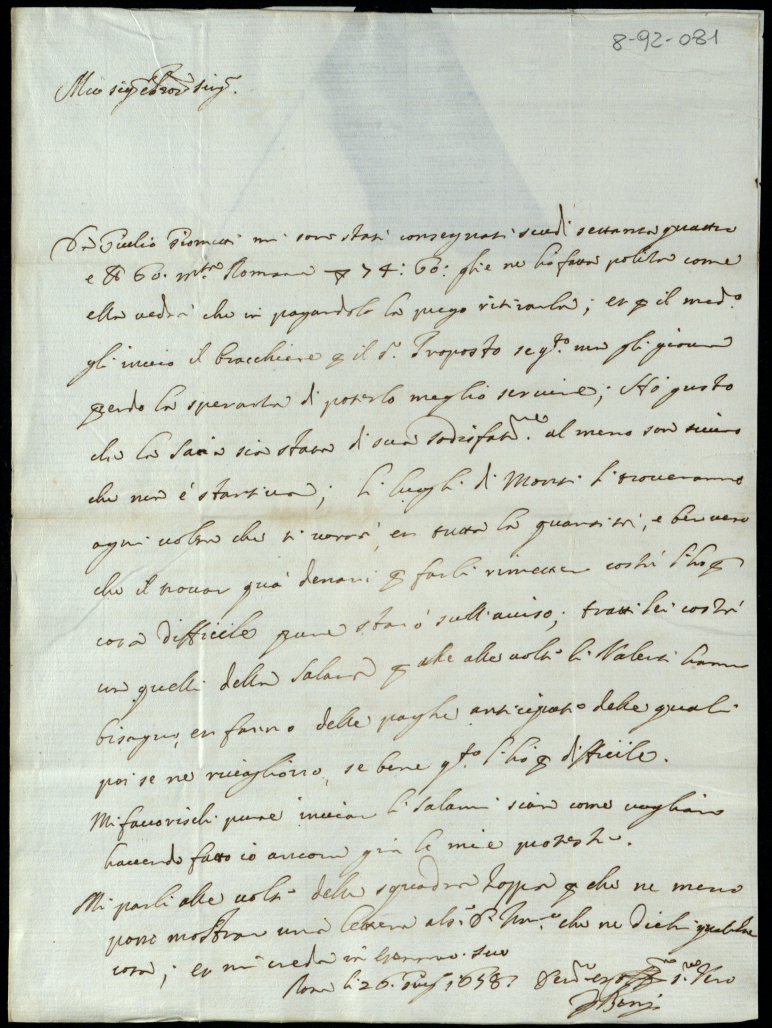 8-92-081
Mio sig.r e Pron. sing.
Da Giulio mi sono stati consegnati scudi settanta quattro
e 60. m.ta Romana 74: 60: glie ne ho fatta polita come
ella vedrà che in pagandola la prego ritirarla; et p il med.o
gli invio il bracchiere p il s.r Proposto se q.to non gli giova
perdo la speranza di poterlo meglio servire; Hò gusto
che la sia stata di sua sodisfat.ne al meno son sicuro
che non è; li luoghi di Monti li troveranno
ogni volta che si vorrà, en tutta la quantità, e ben vero
che il trovar quà denari p farli rimetter costì l'ho p
cosa difficile pure starò sull'aviso; tratti lei costì
con quelli della p che alle volte li hanno
bisogno, en fanno delle paghe anticipat.e delle quali
poi se ne, se bene q.to l'ho p difficile.
Mi favorischi pure inviar li salami sian come vogliano
havendo fatto io ancora già le mie proteste.
Mi parli alle volte della squadra p che ne meno
posso mostrar una lettera al s.r che ne dichi qualche
cosa; et mi creda in suo
Roma li 26. 1658.